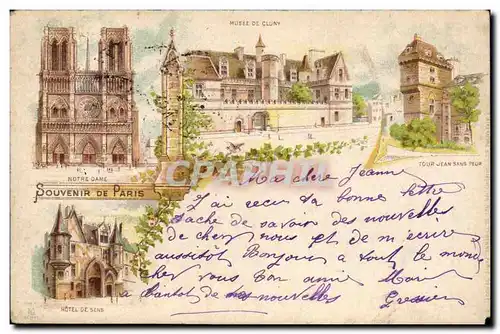 MUSÉE DE CLUNY
NOTRE DAME
TOUR JEAN SANS PEUR
SOUVENIR DE PARIS
HÔTEL DE SENS
CPARAMA
Ma chère Jeanne
J'ai reçu ta bonne lettre
tache de savoir des nouvelles
de chez nous et de m'écrire
aussitôt Bonjour a tout le monde
chez vous ton ami
a bientôt de nouvelles